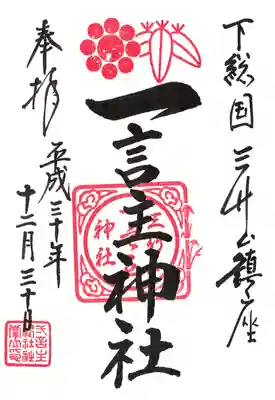 下総国三竹山鎮座
一言主神社
神社
奉拝
平成三十年
十二月三十日